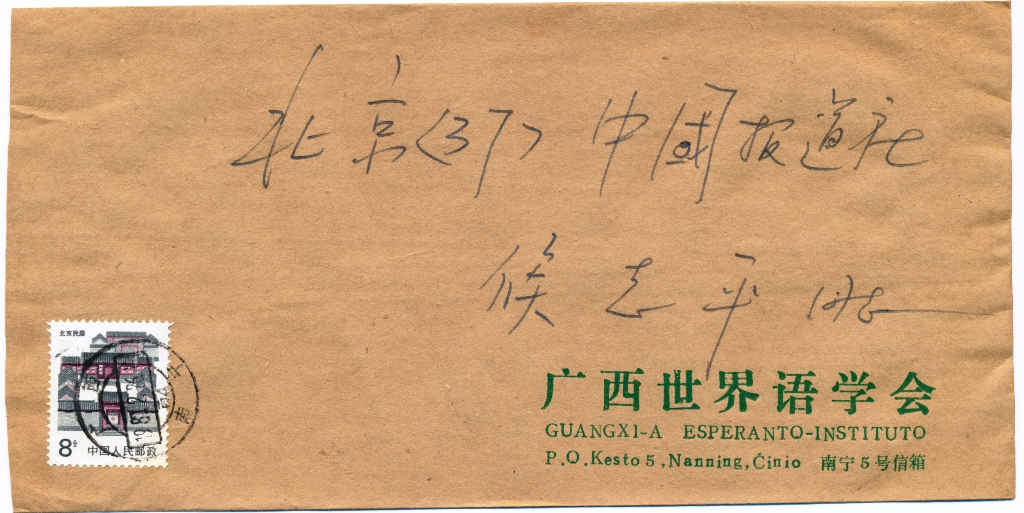 北京(37) 中國报道社
侯志平 同志
北京民居
8分
中国人民邮政
广西世界语学会
GUANGXI-A ESPERANTO-INSTITUTO
P.O.Kesto 5, Nanning, Ĉinio 南宁5号信箱